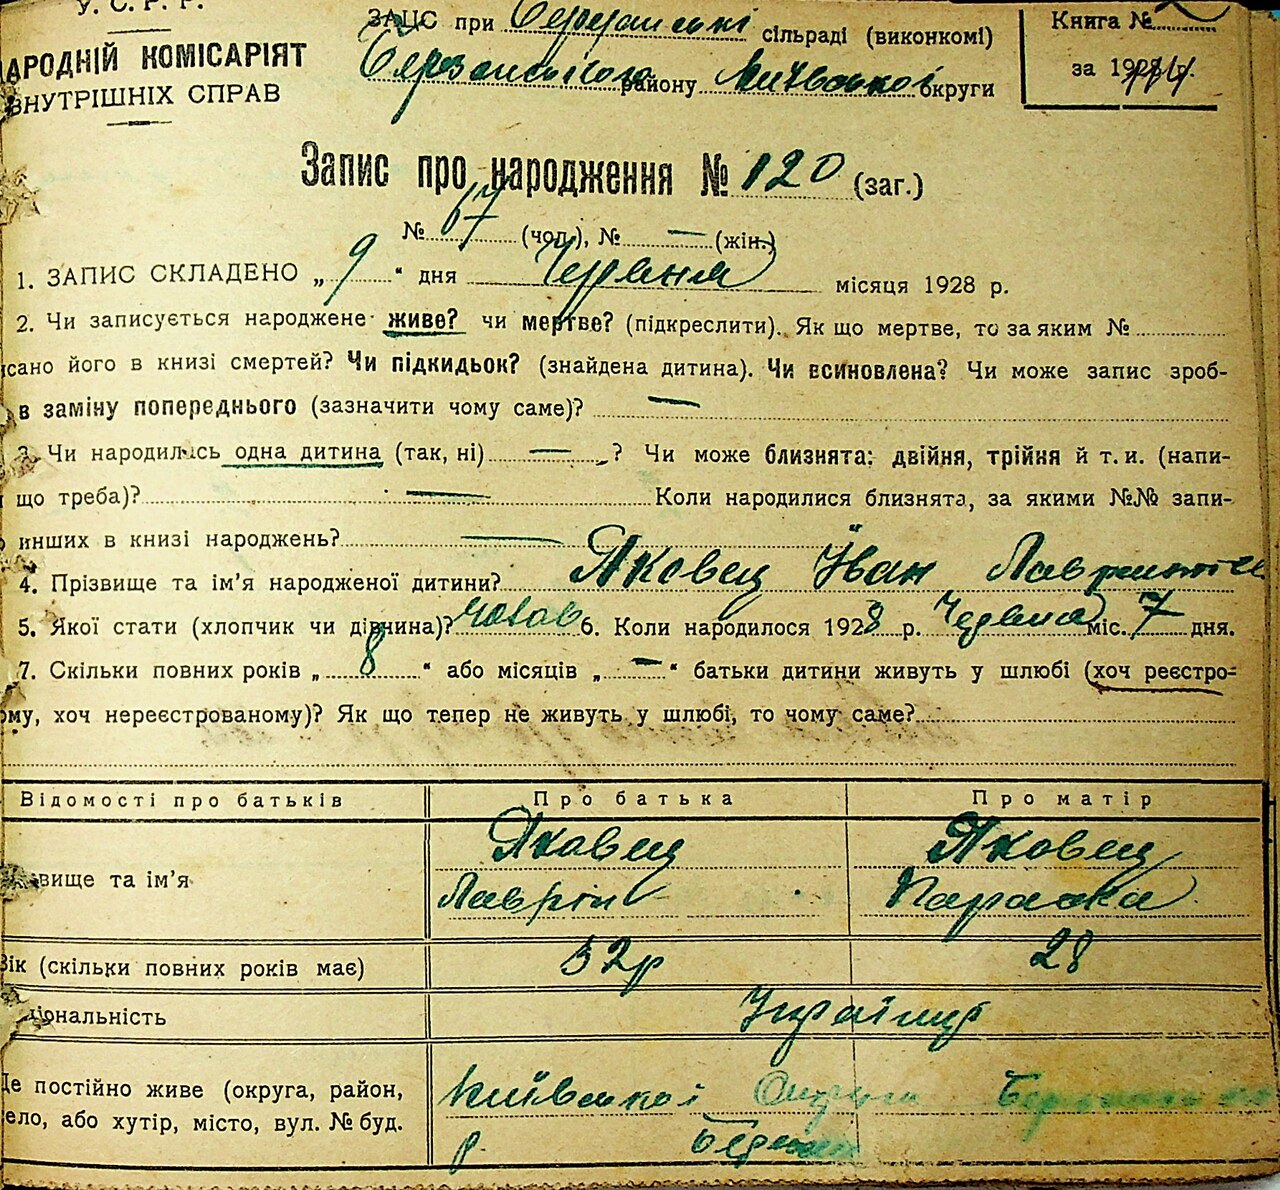 У. С. Р. Р.
АРОДНІЙ КОМІСАРІЯТ
ВНУТРІШНІХ СПРАВ
ЗАЦС при сільраді (виконкомі)
Березанського району Київської округи
Книга №
за 192 р.
Запис про народження № 120 (заг.)
№ 67 (чол.), № — (жін.)
1. ЗАПИС СКЛАДЕНО „ 9 “ дня Червня місяця 1928 р.
2. Чи записується народжене живе? чи мертве? (підкреслити). Як що мертве, то за яким №
исано його в книзі смертей? Чи підкидьок? (знайдена дитина). Чи всиновлена? Чи може запис зроб-
в заміну попереднього (зазначити чому саме)? —
3. Чи народилась одна дитина (так, ні) — ? Чи може близнята: двійня, трійня й т. и. (напи-
що треба)? — Коли народилися близнята, за якими №№ запи-
инших в книзі народжень? —
4. Прізвище та ім’я народженої дитини? Яковец Іван
5. Якої стати (хлопчик чи дівчина)? 6. Коли народилося 1928 р. Червня міс. 7 дня.
7. Скільки повних років „ 8 “ або місяців „ — “ батьки дитини живуть у шлюбі (хоч реєстро-
ому, хоч нереєстрованому)? Як що тепер не живуть у шлюбі, то чому саме?
Відомості про батьків Про батька Про матір
Яковец Яковец
вище та ім’я
Лаврін Параска
Вік (скільки повних років має) 32р 28
ціональність Українці
Де постійно живе (округа, район, Київської Округи
ело, або хутір, місто, вул. № буд. р.